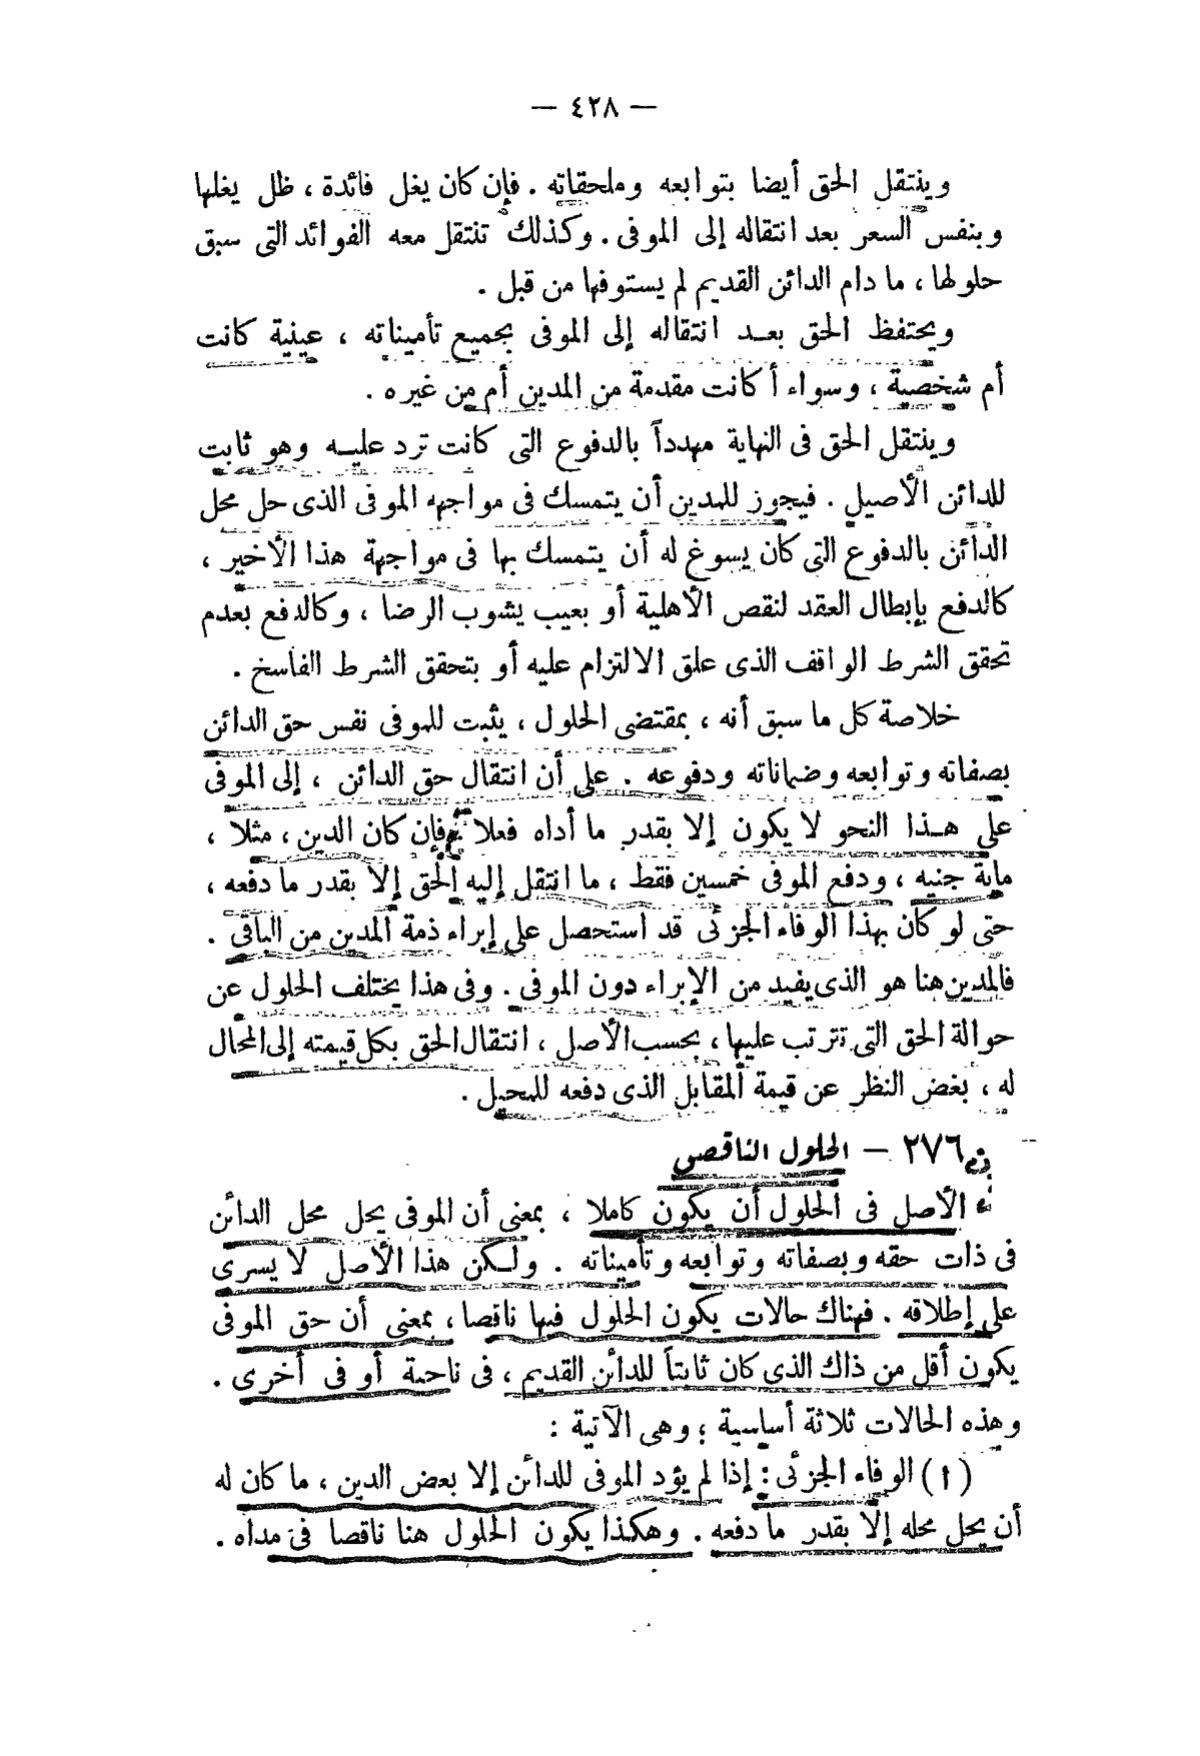 — ٤٢٨ —
وينتقل الحق أيضا بتوابعه وملحقاته . فإن كان يغل فائدة ، ظل يغلها
وبنفس السعر بعد انتقاله إلى الموفى . وكذلك تنتقل معه الفوائد التى سبق
حلولها ، ما دام الدائن القديم لم يستوفها من قبل .
ويحتفظ الحق بعد انتقاله إلى الموفى بجميع تأميناته ، عينية كانت
أم شخصية ، وسواء أكانت مقدمة من المدين أم من غيره .
وينتقل الحق فى النهاية مهدداً بالدفوع التى كانت ترد عليه وهو ثابت
للدائن الأصيل . فيجوز للمدين أن يتمسك فى مواجهه الموفى الذى حل محل
الدائن بالدفوع التى كان يسوغ له أن يتمسك بها فى مواجهة هذا الأخير ،
كالدفع بإبطال العقد لنقص الأهلية أو بعيب يشوب الرضا ، وكالدفع بعدم
تحقق الشرط الواقف الذى علق الالتزام عليه أو بتحقق الشرط الفاسخ .
خلاصة كل ما سبق أنه ، بمقتضى الحلول ، يثبت للموفى نفس حق الدائن
بصفاته وتوابعه وضماناته ودفوعه . على أن انتقال حق الدائن ، إلى الموفى
على هذا النحو لا يكون إلا بقدر ما أداه فعلا فإن كان الدين ، مثلا ،
ماية جنيه ، ودفع الموفى خمسين فقط ، ما انتقل إليه الحق إلا بقدر ما دفعه ،
حتى لو كان بهذا الوفاء الجزئى قد استحصل على إبراء ذمة المدين من الباقى .
فالمدين هنا هو الذى يفيد من الإبراء دون الموفى . وفى هذا يختلف الحلول عن
حوالة الحق التى تترتب عليها ، بحسب الأصل ، انتقال الحق بكل قيمته إلى المحال
له ، بغض النظر عن قيمة المقابل الذى دفعه للمحيل .
٢٧٦ – الحلول الناقص
الأصل فى الحلول أن يكون كاملا ، بمعنى أن الموفى يحل محل الدائن
فى ذات حقه وبصفاته وتوابعه وتأميناته . ولكن هذا الأصل لا يسرى
على إطلاقه . فهناك حالات يكون الحلول فيها ناقصا ، بمعنى أن حق الموفى
يكون أقل من ذاك الذى كان ثابتاً للدائن القديم ، فى ناحية أو فى أخرى .
وهذه الحالات ثلاثة أساسية ؛ وهى الآتية :
( ا ) الوفاء الجزئى : إذا لم يؤد الموفى للدائن إلا بعض الدين ، ما كان له
أن يحل محله إلا بقدر ما دفعه . وهكذا يكون الحلول هنا ناقصا فى مداه .